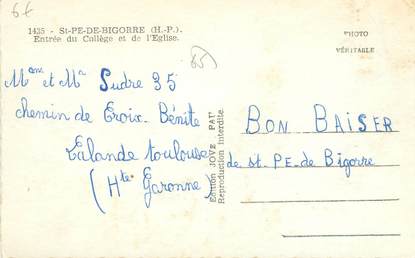 6€
1435 - St-PE-DE-BIGORRE (H.-P.).
Entrée du Collège et de l'Eglise.
PHOTO
VÉRITABLE
65
Mme et Mr Sudre 35
chemin de Croix-Bénite
Lalande toulouse
(Hte Garonne)
Edition JOVE PAU
Reproduction Interdite.
BON BAiSER
de st. PE-de Bigorre